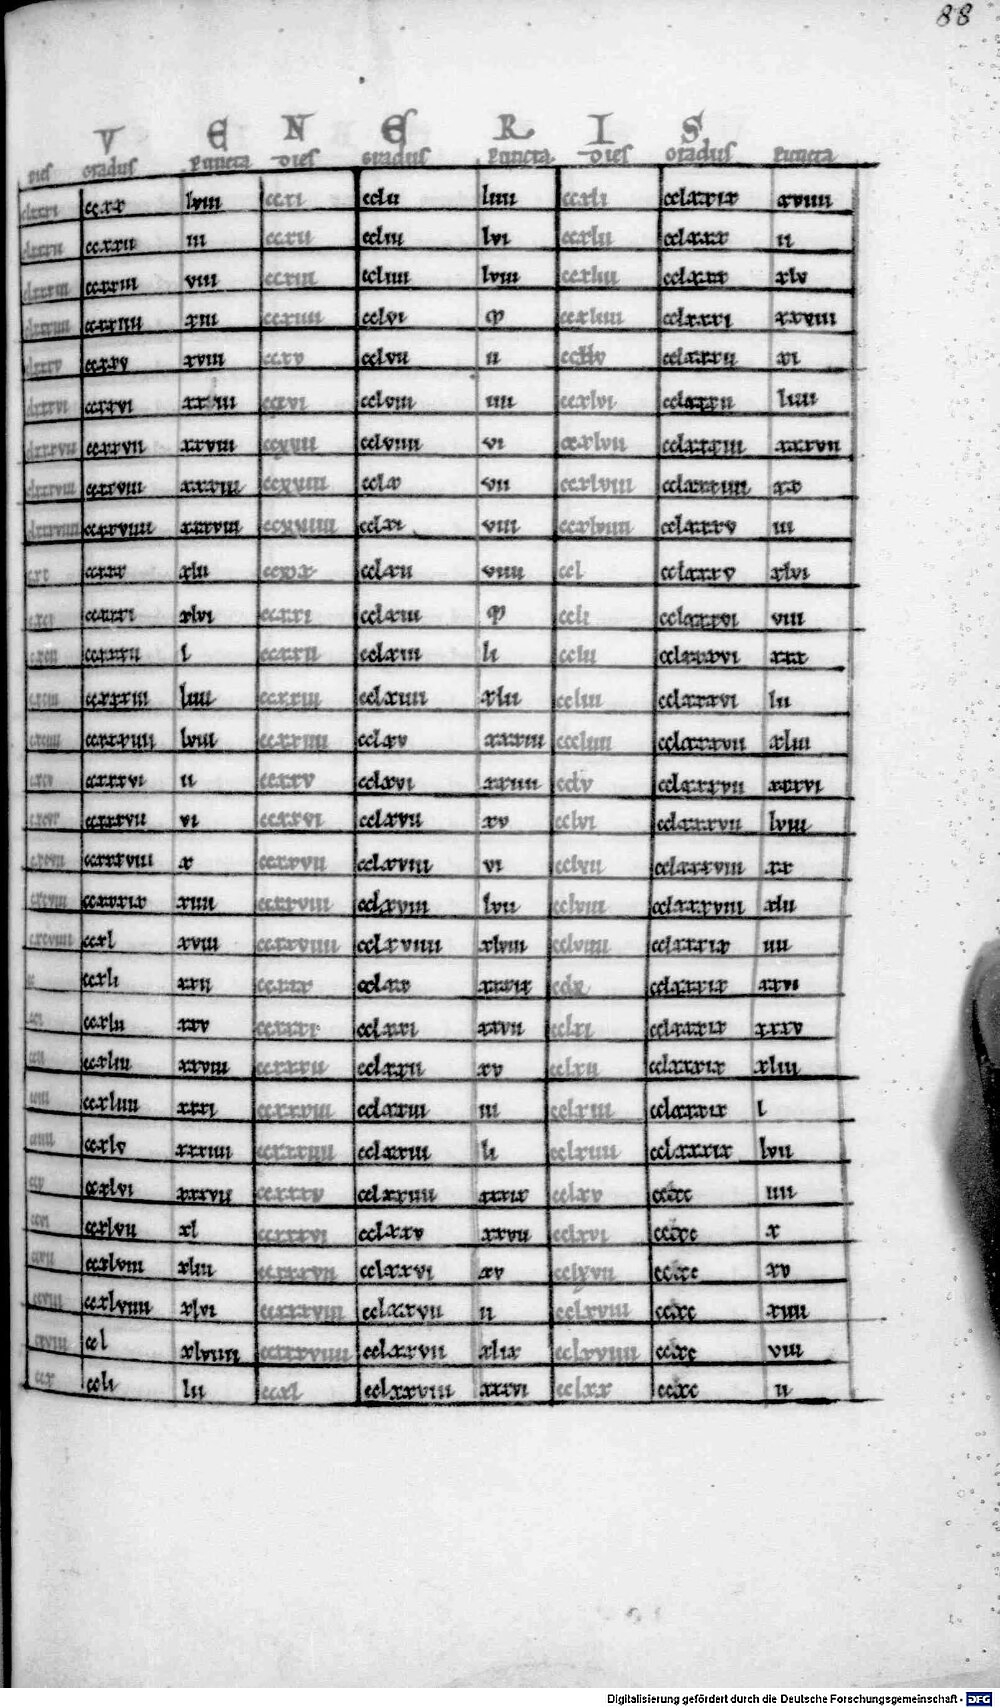 88
V E N E R I S
dies gradus puncta dies gradus puncta dies gradus puncta
clxxxi ccxx lviii ccxi cclii liiii ccxli cclxxix xviiii
clxxxii ccxxii iii ccxii ccliii lvi ccxlii cclxxx ii
clxxxiii ccxxiii viii ccxiii ccliiii lviii ccxliii cclxxx xlv
clxxxiiii ccxxiiii xiii ccxiiii cclvi ccxliiii cclxxxi xxviii
clxxxv ccxxv xviii ccxv cclvii ii ccxlv cclxxxii xi
clxxxvi ccxxvi xxiii ccxvi cclviii iiii ccxlvi cclxxxii liiii
clxxxvii ccxxvii xxviii ccxvii cclviiii vi ccxlvii cclxxxiii xxxvii
clxxxviii ccxxviii xxxiii ccxviii cclx vii ccxlviii cclxxxiiii xx
clxxxviiii ccxxviiii xxxviii ccxviiii cclxi viii ccxlviiii cclxxxv iii
cxc ccxxx xlii ccxx cclxii viiii ccl cclxxxv xlvi
cxci ccxxxi xlvi ccxxi cclxiii ccli cclxxxvi viii
cxcii ccxxxii l ccxxii cclxiii li cclii cclxxxvi xxx
cxciii ccxxxiii liiii ccxxiii cclxiiii xlii ccliii cclxxxvi lii
cxciiii ccxxxviiii lviii ccxxiiii cclxv xxxiii cccliiii cclxxxvii xliii
cxcv ccxxxvi ii ccxxv cclxvi xxiiii cclv cclxxxvii xxxvi
cxcvi ccxxxvii vi ccxxvi cclxvii xv cclvi cclxxxvii lviii
cxcvii ccxxxviii x ccxxvii cclxviii vi cclvii cclxxxviii xx
cxcviii ccxxxix xiiii ccxxviii cclxviii lvii cclviii cclxxxviii xlii
cxcviiii ccxl xviii ccxxviiii cclxviiii xlviii cclviiii cclxxxix iiii
cc ccxli xxii ccxxx cclxx xxxix cclx cclxxxix xxvi
cci ccxlii xxv ccxxxi cclxxi xxvii cclxi cclxxxix xxxv
ccii ccxliii xxviii ccxxxii cclxxii xv cclxii cclxxxix xliii
cciii ccxliiii xxxi ccxxxiii cclxxiii iii cclxiii cclxxxix l
cciiii ccxlv xxxiiii ccxxxiiii cclxxiii li cclxiiii cclxxxix lvii
ccv ccxlvi xxxvii ccxxxv cclxxiiii xxxix cclxv ccxc iiii
ccvi ccxlvii xl ccxxxvi cclxxv xxvii cclxvi ccxc x
ccvii ccxlviii xliii ccxxxvii cclxxvi xv cclxvii ccxc xv
ccviii ccxlviiii xlvi ccxxxviii cclxxvii ii cclxviii ccxc xiiii
ccviiii ccl xlviiii ccxxxviiii cclxxvii xlix cclxviiii ccxc viii
ccx ccli lii ccxl cclxxviii xxxvi cclxx ccxc ii
Digitalisierung gefördert durch die Deutsche Forschungsgemeinschaft - DFG